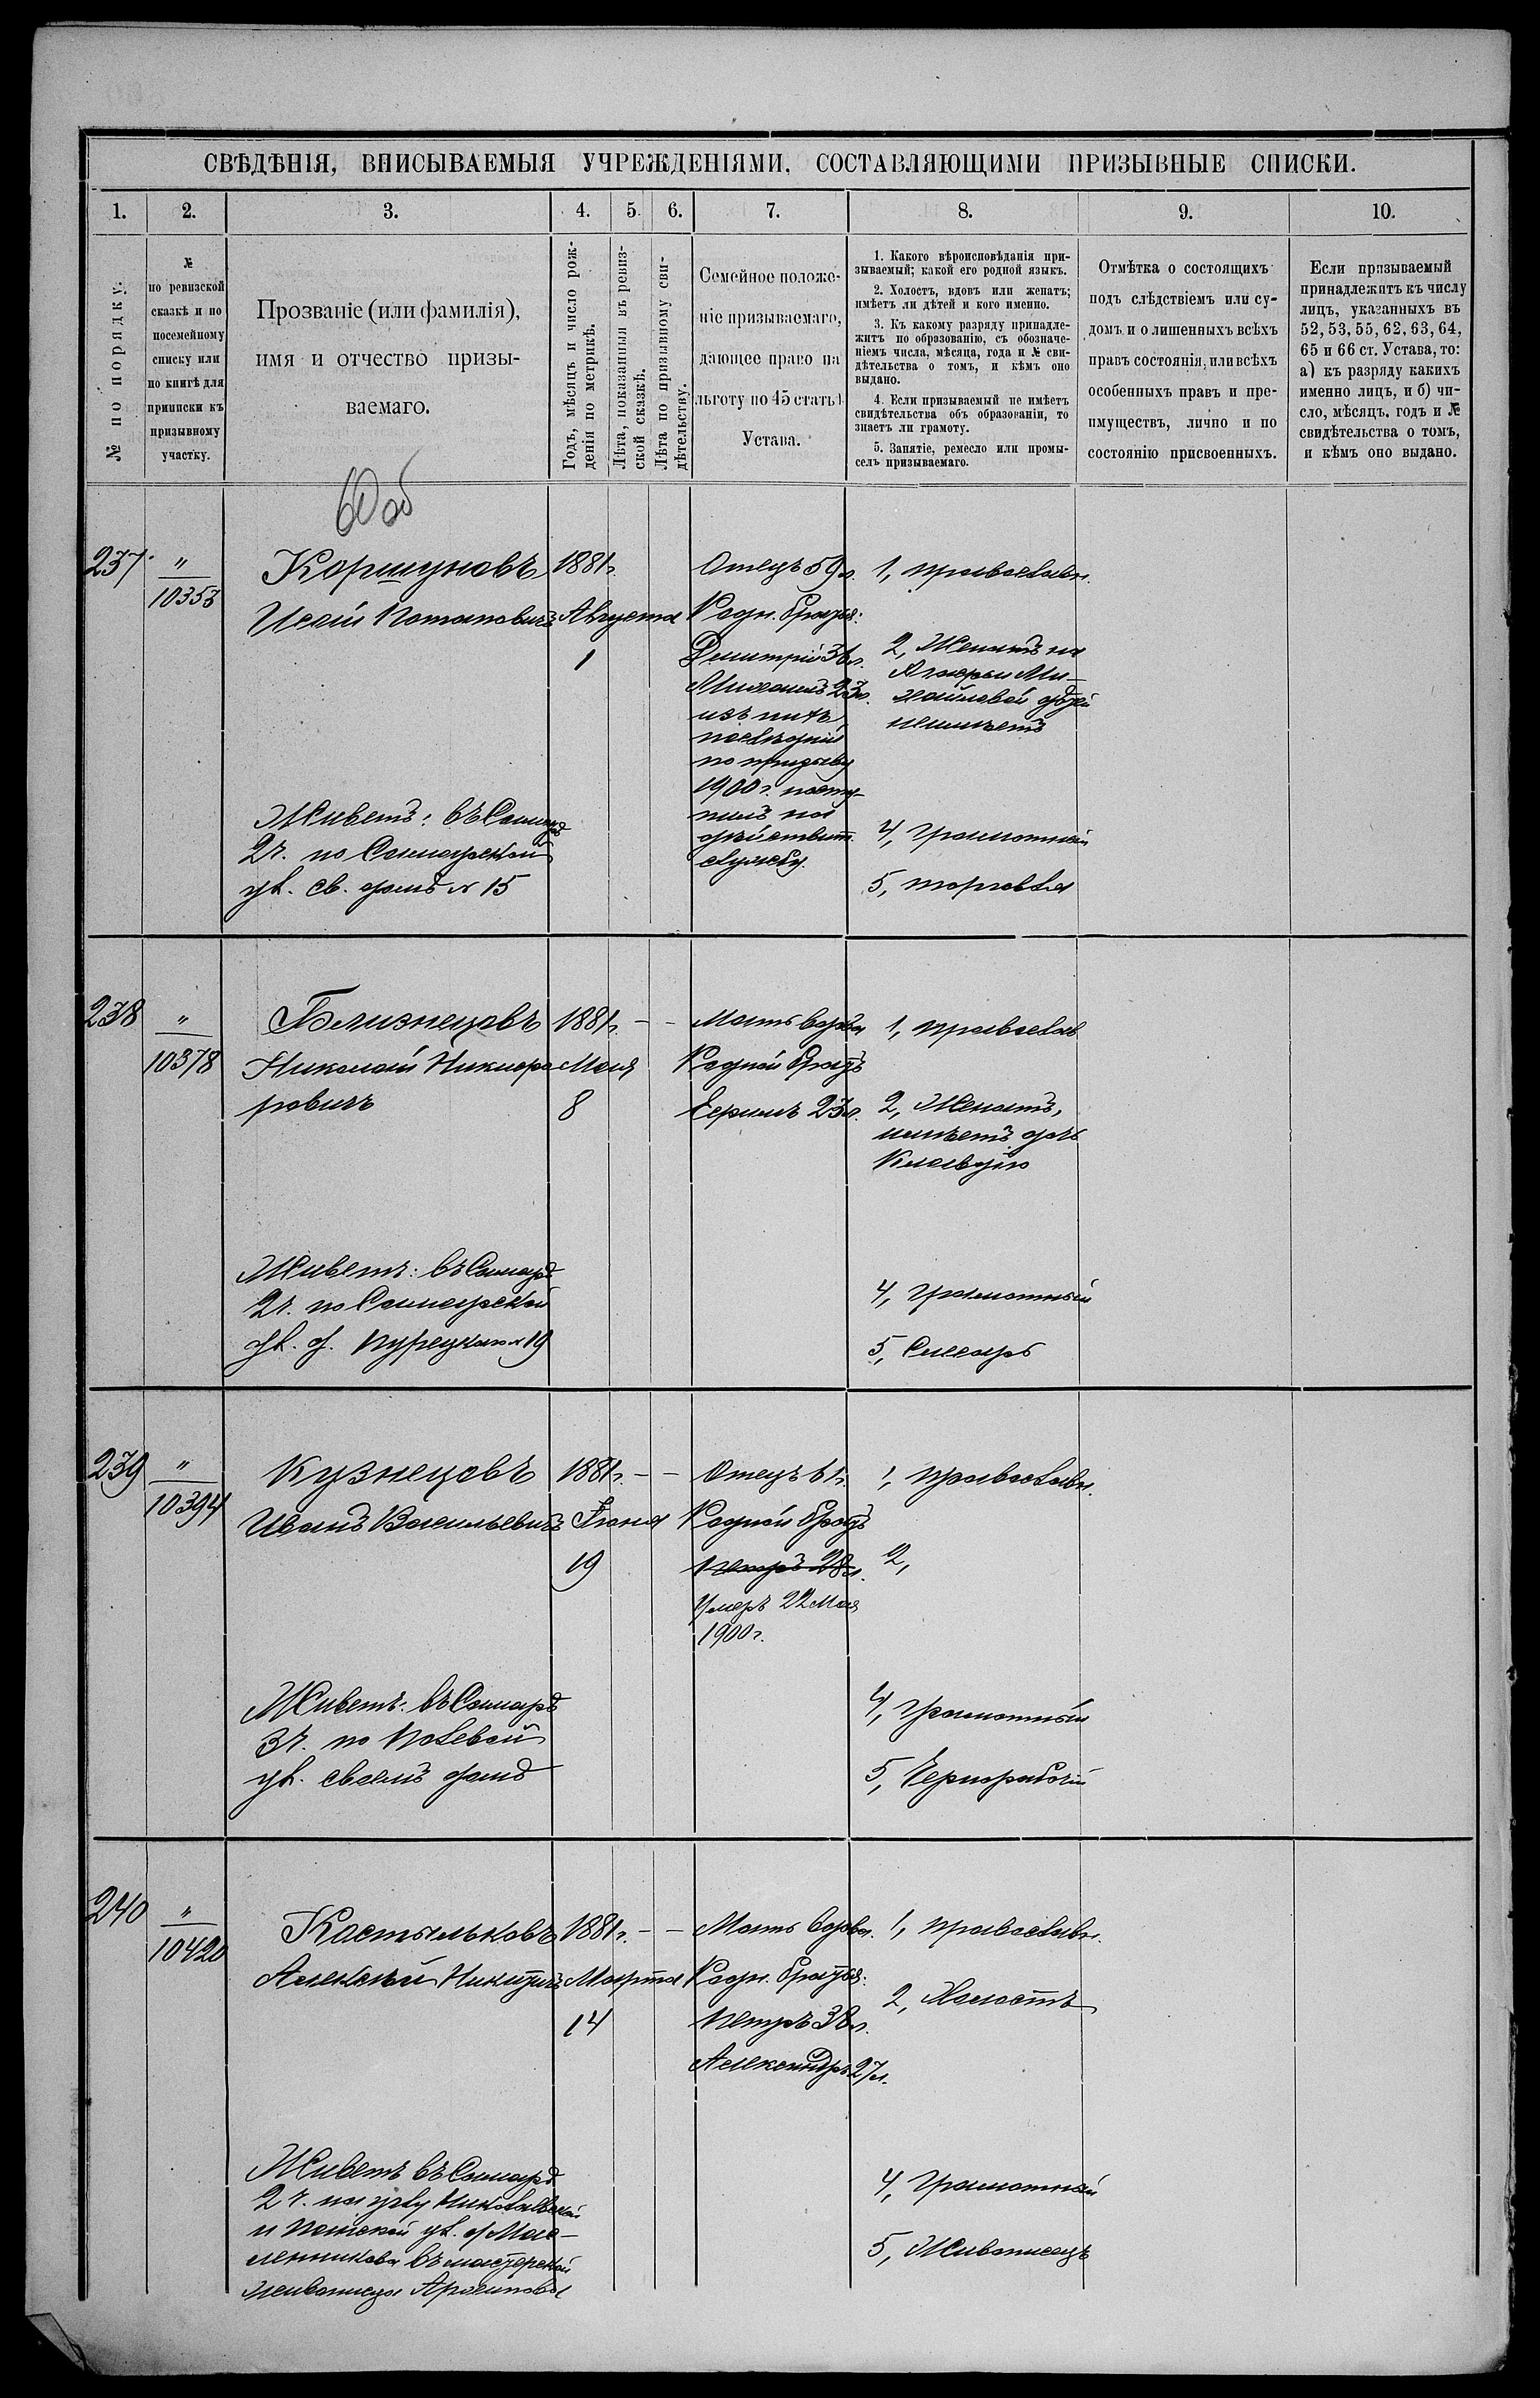 СВѢДѢНІЯ, ВПИСЫВАЕМЫЯ УЧРЕЖДЕНІЯМИ, СОСТАВЛЯЮЩИМИ ПРИЗЫВНЫЕ СПИСКИ.
1. 2. 3. 4. 5. 6. 7. 8. 9. 10.
№ по порядку.
№
по ревизской
сказкѣ и по
посемейному
списку или
по книгѣ для
приписки къ
призывному
участку.
Прозваніе (или фамилія),
имя и отчество призы-
ваемаго.
Годъ, мѣсяцъ и число рож-
денія по метрикѣ.
Лѣта, показанныя въ ревиз-
ской сказкѣ.
Лѣта по призывному сви-
дѣтельству.
Семейное положе-
ніе призываемаго,
дающее право на
льготу по 45 статьѣ
Устава.
1. Какого вѣроисповѣданія при-
зываемый; какой его родной языкъ.
2. Холостъ, вдовъ или женатъ;
имѣетъ ли дѣтей и кого именно.
3. Къ какому разряду принадле-
житъ по образованію, съ обозначе-
ніемъ числа, мѣсяца, года и № сви-
дѣтельства о томъ, и кѣмъ оно
выдано.
4. Если призываемый не имѣетъ
свидѣтельства объ образованіи, то
знаетъ ли грамоту.
5. Занятіе, ремесло или промы-
селъ призываемаго.
Отмѣтка о состоящихъ
подъ слѣдствіемъ или су-
домъ и о лишенныхъ всѣхъ
правъ состоянія, или всѣхъ
особенныхъ правъ и пре-
имуществъ, лично и по
состоянію присвоенныхъ.
Если призываемый
принадлежитъ къ числу
лицъ, указанныхъ въ
52, 53, 55, 62, 63, 64,
65 и 66 ст. Устава, то:
а) къ разряду какихъ
именно лицъ, и б) чи-
сло, мѣсяцъ, годъ и №
свидѣтельства о томъ,
и кѣмъ оно выдано.
60 об
237
"
10353
Коршуновъ
Исай Потаповичъ
Живетъ: въ Самарѣ
2 ч. по Самарской
ул. св. домъ № 15
1881 г.
Августа
1
Отецъ 59 л.
Родн. братья:
Дмитрій 31 л.
Михаилъ 23 л.
изъ нихъ
послѣдній
по призыву
1900 г. посту-
пилъ на
дѣйствит.
службу.
1, православн.
2, Женатъ на
Ми-
хайловой дѣтей
неимѣетъ
4, Грамотный
5, торговля
238
"
10378
Близнецовъ
Николай Никифо
ровичъ
Живетъ: въ Самарѣ
2 ч. по Самарской
ул. д. Курецкаго № 19
1881 г. – –
Мая
8
Мать вдова
Родной братъ
Ефимъ 23 л.
1, православ
2, Женатъ,
имѣетъ дочь
Клавдію
4, Грамотный
5, Слесарь
239
"
10394
Кузнецовъ
Иванъ Васильевичъ
Живетъ: въ Самарѣ
3 ч. по Полевой
ул. своемъ домѣ
1881 г. – –
Іюня
19
Отецъ 61 г.
Родной братъ
Петръ 28 л.
Умеръ 22 Мая
1900 г.
1, православн.
2,
4, Грамотный
5, Чернорабочій
240
"
10420
Костыльковъ
Алексѣй Никитичъ
Живетъ въ Самарѣ
2 ч. на углу Николаевской
и Почтовой ул. д. Мас-
ленникова въ мастерской
живописца Архипова
1881 г. – –
Марта
14
Мать вдова.
Родн. братья:
Петръ 38 л.
Александръ 27 л.
1, православн.
2, Холостъ
4, Грамотный
5, Живописецъ